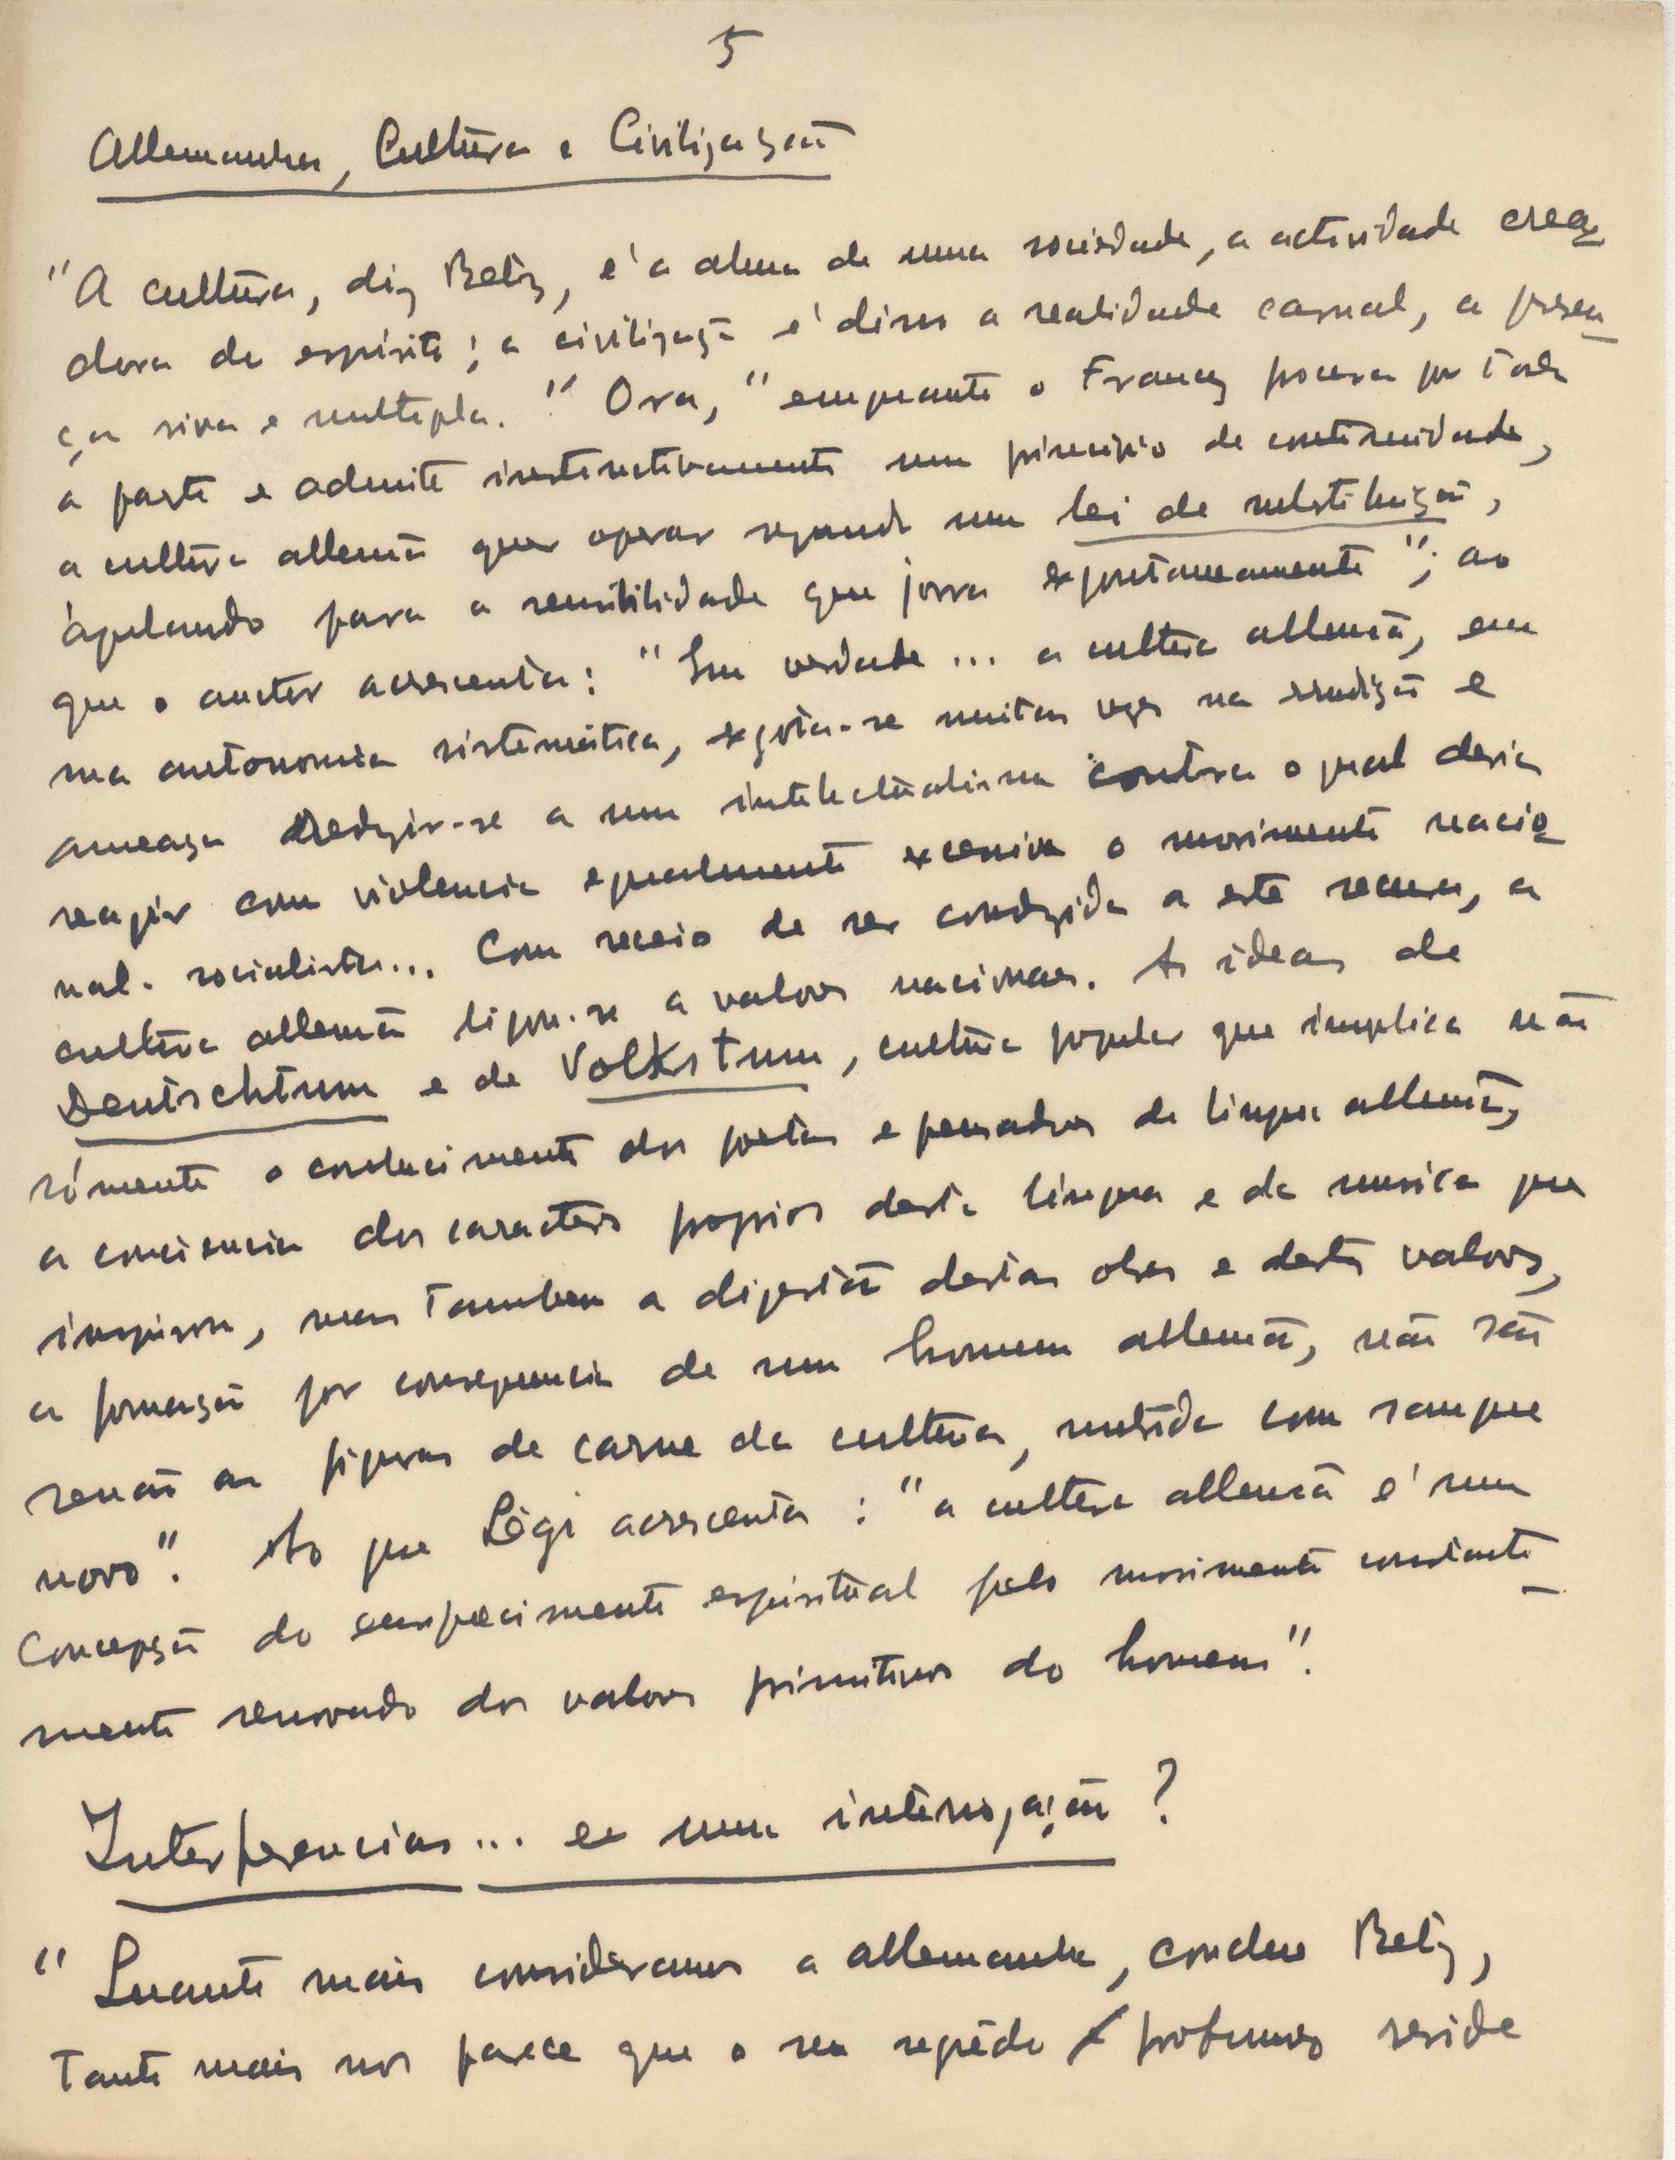 5
Allemanha, Cultura e Civilização
"A cultura, diz Betz, é a alma de uma sociedade, a actividade crea-
dora do espirito; a civilização é disso a realidade carnal, a presen-
ça viva e multipla." Ora, "emquanto o Francez procura por toda
a parte e admite instinctivamente um principio de continuidade,
a cultura allemã quer operar segundo uma lei de substituição,
apelando para a sensibilidade que jorra espontaneamente"; ao
que o auctor acrescenta: "Em verdade... a cultura allemã, em
sua autonomia sistemática, esgota-se muitas vezes na erudição e
ameaça reduzir-se a um intelectualismo contra o qual devia
reagir com violencia egualmente excessiva o movimento nacio-
nal-socialista... Com receio de ser conduzida a este recurso, a
cultura allemã ligou-se a valores nacionaes. As ideas de
Deutschtum e de Volkstum, cultura popular que implica não
sómente o conhecimento dos poetas e pensadores de lingua allemã,
a consciencia dos caracteres proprios desta lingua e da musica que
inspirou, mas tambem a digestão destas obras e destes valores,
a formação por consequencia de um homem allemão, não são
senão as figuras de carne da cultura, nutrida com sangue
novo". Ao que Légi acrescenta: "a cultura allemã é uma
concepção do enriquecimento espiritual pelo movimento constante-
mente renovado dos valores primitivos do homem".
Interferencias... e uma interrogação?
"Quanto mais consideramos a Allemanha, conclue Betz,
tanto mais nos parece que o seu segrêdo profundo reside